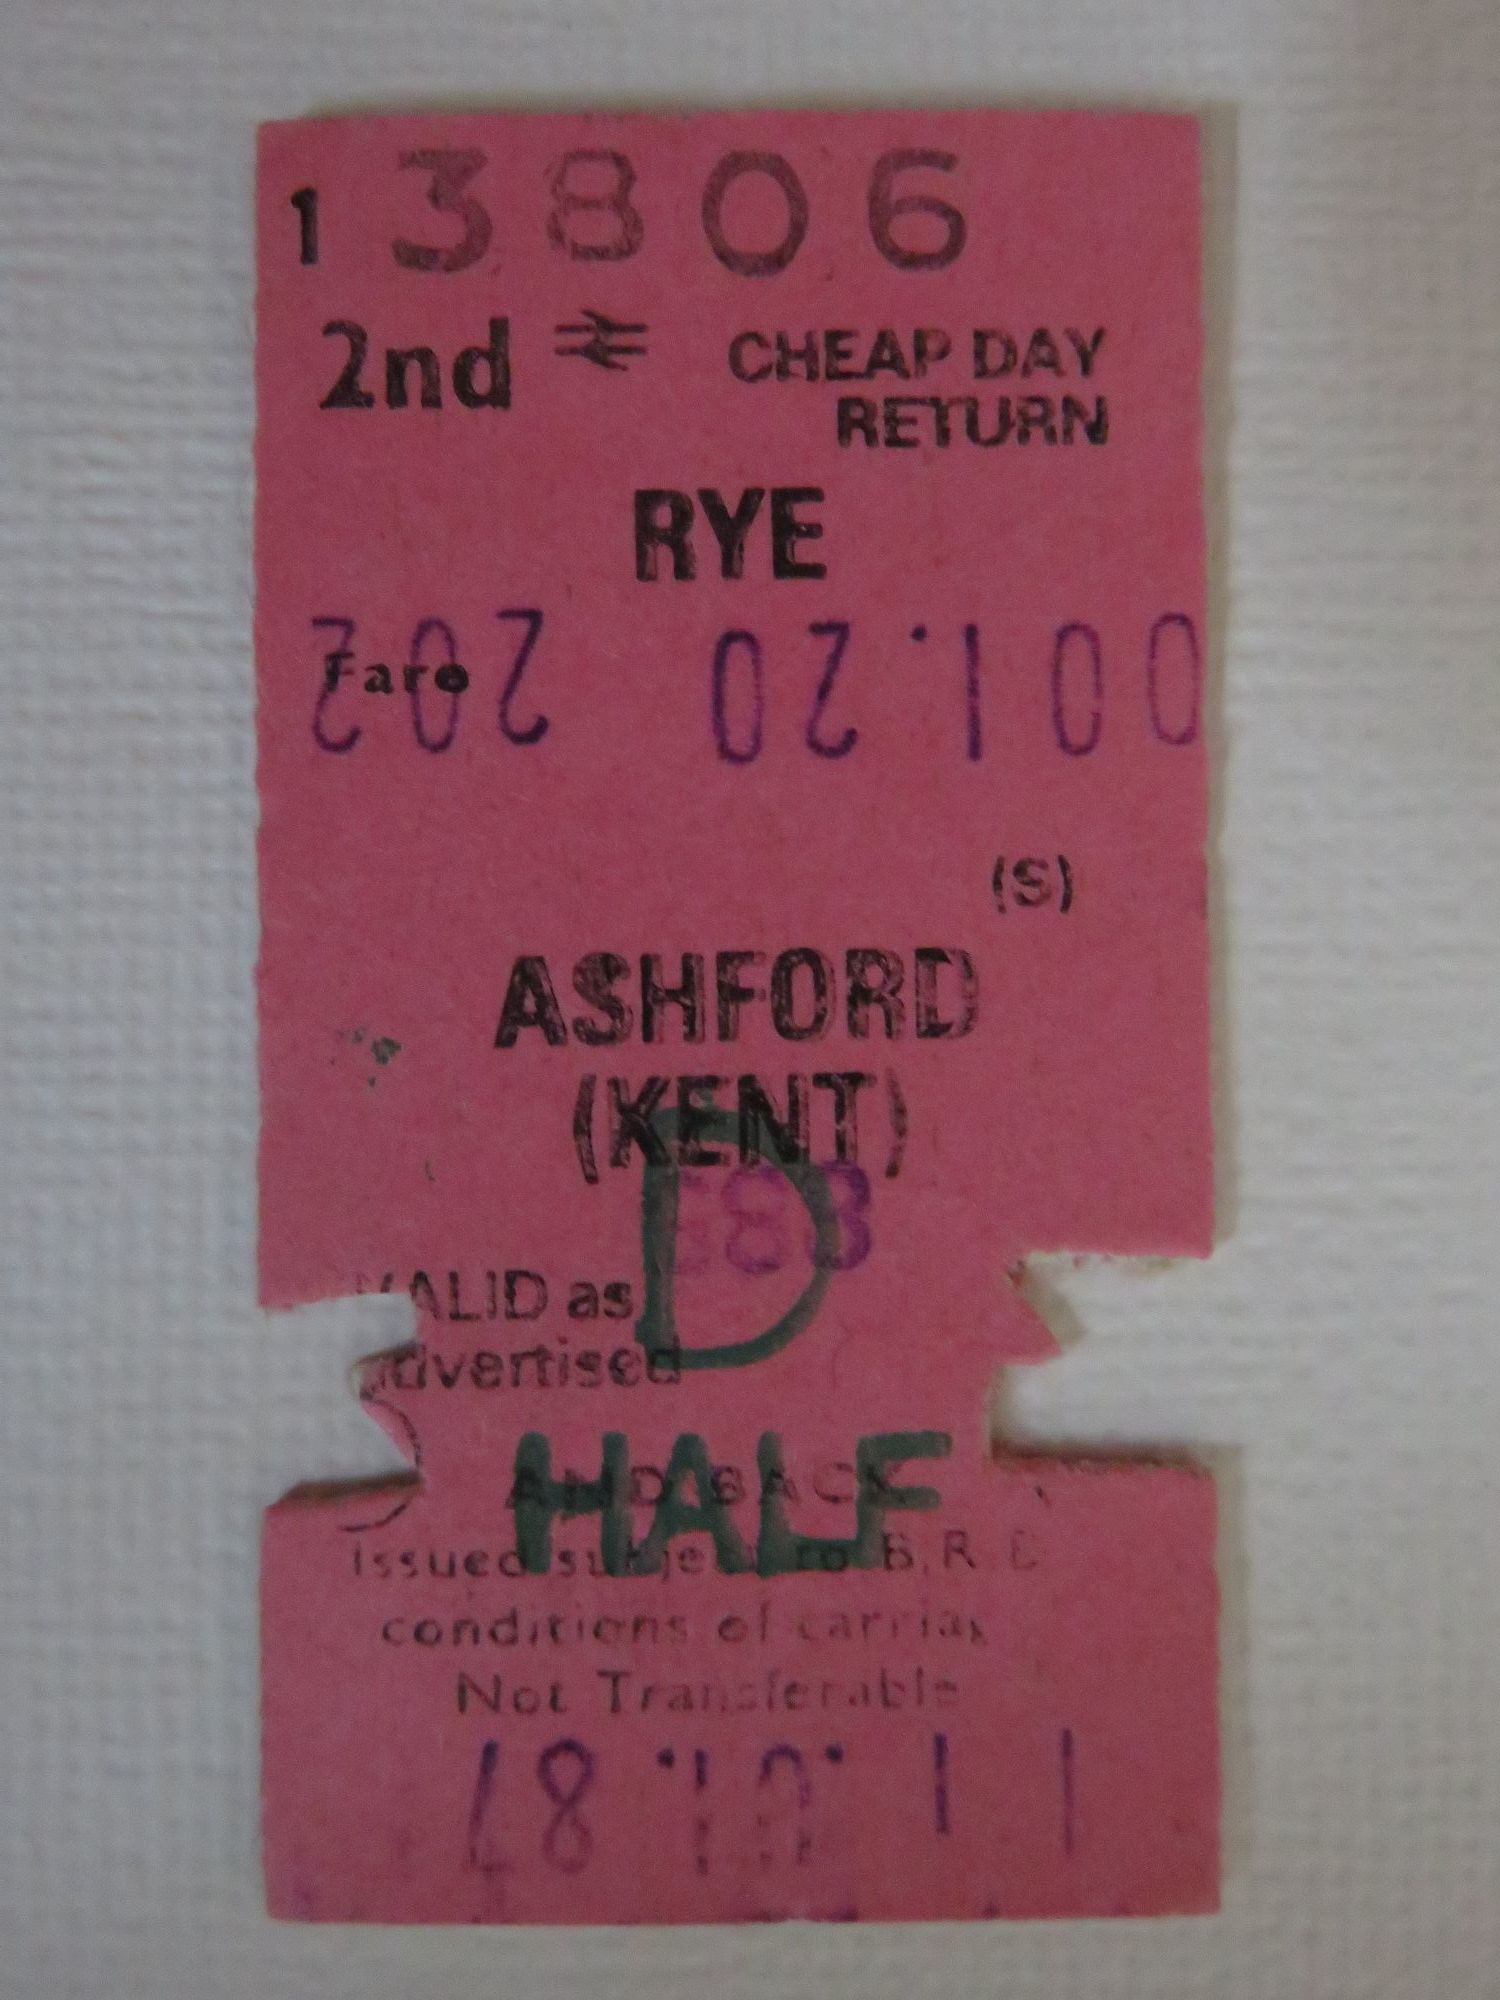 1 3806
2nd CHEAP DAY
RETURN
RYE
Fare
001.20 202
(S)
ASHFORD
(KENT)
D
VALID as
advertised
HALF
AND BACK
Issued subject to B.R.B
conditions of carriag
Not Transferable
11.01.87